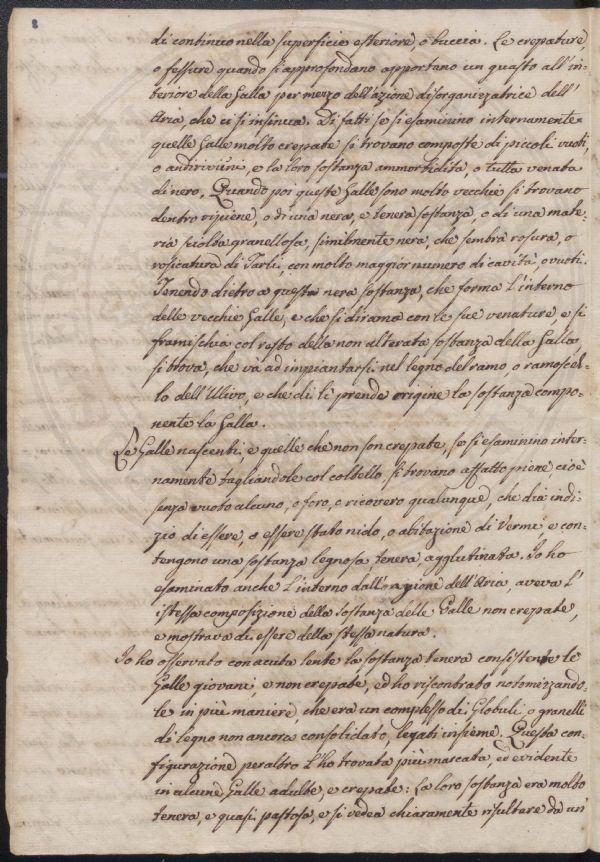 8
di continuo nella superficie esteriore, o buccia. Le crepature,
o fessure quando si approfondano apportano un guasto all'in=
teriore della Galla per mezzo dell'azione disorganizzatrice dell'
Aria, che ci si insinua. Di fatti se si esaminino internamente
quelle Galle molto crepate si trovano composte di piccoli vuoti,
o andirivieni, e la loro sostanza ammorbidita, o tutta venata
di nero. Quando poi queste Galle sono molto vecchie si trovano
dentro ripiene, o di una nera, e tenera sostanza, o di una mate=
ria sciolta granellosa, similmente nera, che sembra rosura, o
rosicatura di Tarli, con molto maggior numero di cavità, o vuoti.
Tenendo dietro a questa nera sostanza, che forma l'interno
delle vecchie Galle, e che si dirama con le sue venature, e si
framischia col resto della non alterata sostanza della Galla
si trova, che và ad impiantarsi nel legno del ramo, o ramoscel=
lo dell'Ulivo, e che di lì prende origine la sostanza compo=
nente la Galla.
Le Galle nascenti, e quelle che non son crepate, se si esaminino inter=
namente tagliandole col coltello si trovano affatto piene cioè
senza vuoto alcuno, o foro, o ricovero qualunque, che dia indi=
zio di essere, o essere stato nido, o abitazione di Vermi, e con=
tengono una sostanza legnosa, tenera, agglutinata. Io ho
esaminato anche l'interno dall'azione dell'Aria, aveva l'
istessa composizione della sostanza delle Galle non crepate,
e mostrava di essere della stessa natura.
Io ho osservato con acuta lente la sostanza tenera consistente le
Galle giovani, e non crepate, ed ho riscontrato notomizzando=
le in più maniere, che era un complesso di Globuli o granelli
di legno non ancora consolidato, legati insieme. Questa con=
figurazione peraltro l'ho trovata più marcata, ed evidente
in alcune Galle adulte, e crepate: La loro sostanza era molto
tenera, e quasi pastosa, e si vedea chiaramente risultare da un'